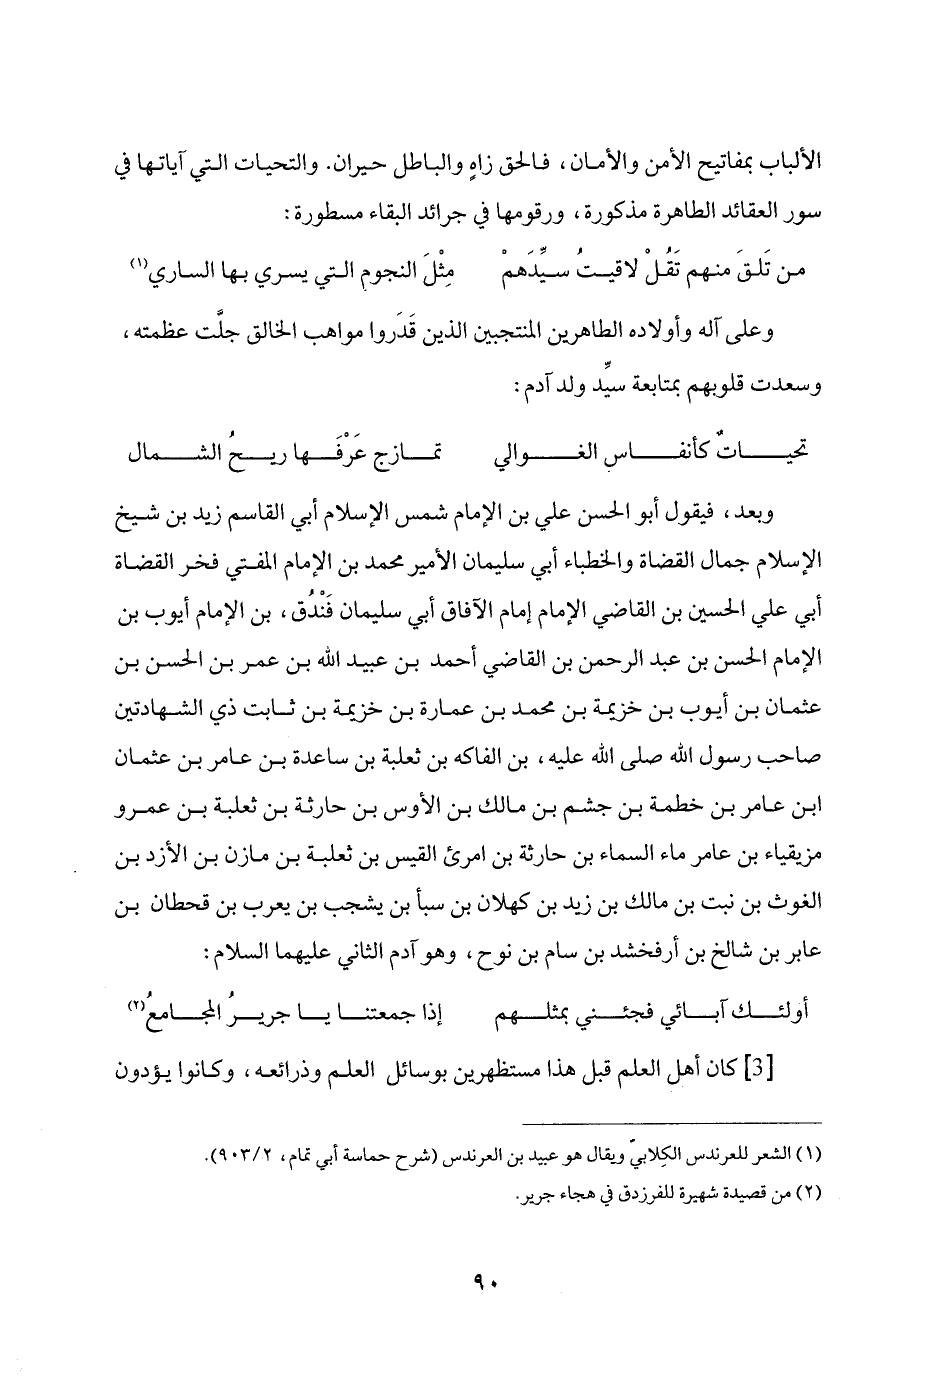 الألباب بمفاتيح الأمن والأمان، فالحق زاهٍ والباطل حيران. والتحيات التي آياتها في
سور العقائد الطاهرة مذكورة، ورقومها في جرائد البقاء مسطورة:
من تَلقَ منهم تَقُلْ لاقيتُ سيِّدَهمْ مِثْلَ النجوم التي يسري بها الساري(١)
وعلى آله وأولاده الطاهرين المنتجبين الذين قَدَروا مواهب الخالق جلَّت عظمته،
وسعدت قلوبهم بمتابعة سيِّد ولد آدم:
تحيـاتٌ كأنفـاس الغـوالي تمـازج عَرْفَـها ريـحُ الشـمال
وبعد، فيقول أبو الحسن علي بن الإمام شمس الإسلام أبي القاسم زيد بن شيخ
الإسلام جمال القضاة والخطباء أبي سليمان الأمير محمد بن الإمام المفتي فخر القضاة
أبي علي الحسين بن القاضي الإمام إمام الآفاق أبي سليمان فَنْدُق، بن الإمام أيوب بن
الإمام الحسن بن عبد الرحمن بن القاضي أحمد بن عبيد الله بن عمر بن الحسن بن
عثمان بن أيوب بن خزيمة بن محمد بن عمارة بن خزيمة بن ثابت ذي الشهادتين
صاحب رسول الله صلى الله عليه، بن الفاكه بن ثعلبة بن ساعدة بن عامر بن عثمان
ابن عامر بن خطمة بن جشم بن مالك بن الأوس بن حارثة بن ثعلبة بن عمرو
مزيقياء بن عامر ماء السماء بن حارثة بن امرئ القيس بن ثعلبة بن مازن بن الأزد بن
الغوث بن نبت بن مالك بن زيد بن كهلان بن سبأ بن يشجب بن يعرب بن قحطان بن
عابر بن شالخ بن أرفخشد بن سام بن نوح، وهو آدم الثاني عليهما السلام:
أولئـك آبـائي فجئـني بمثلـهم إذا جمعتنـا يـا جريـرُ المجـامعُ(٢)
[3] كان أهل العلم قبل هذا مستظهرين بوسائل العلم وذرائعه، وكانوا يؤدون
(١) الشعر للعرندس الكِلابيّ ويقال هو عبيد بن العرندس (شرح حماسة أبي تمام، ٩٠٣/٢).
(٢) من قصيدة شهيرة للفرزدق في هجاء جرير.
٩٠